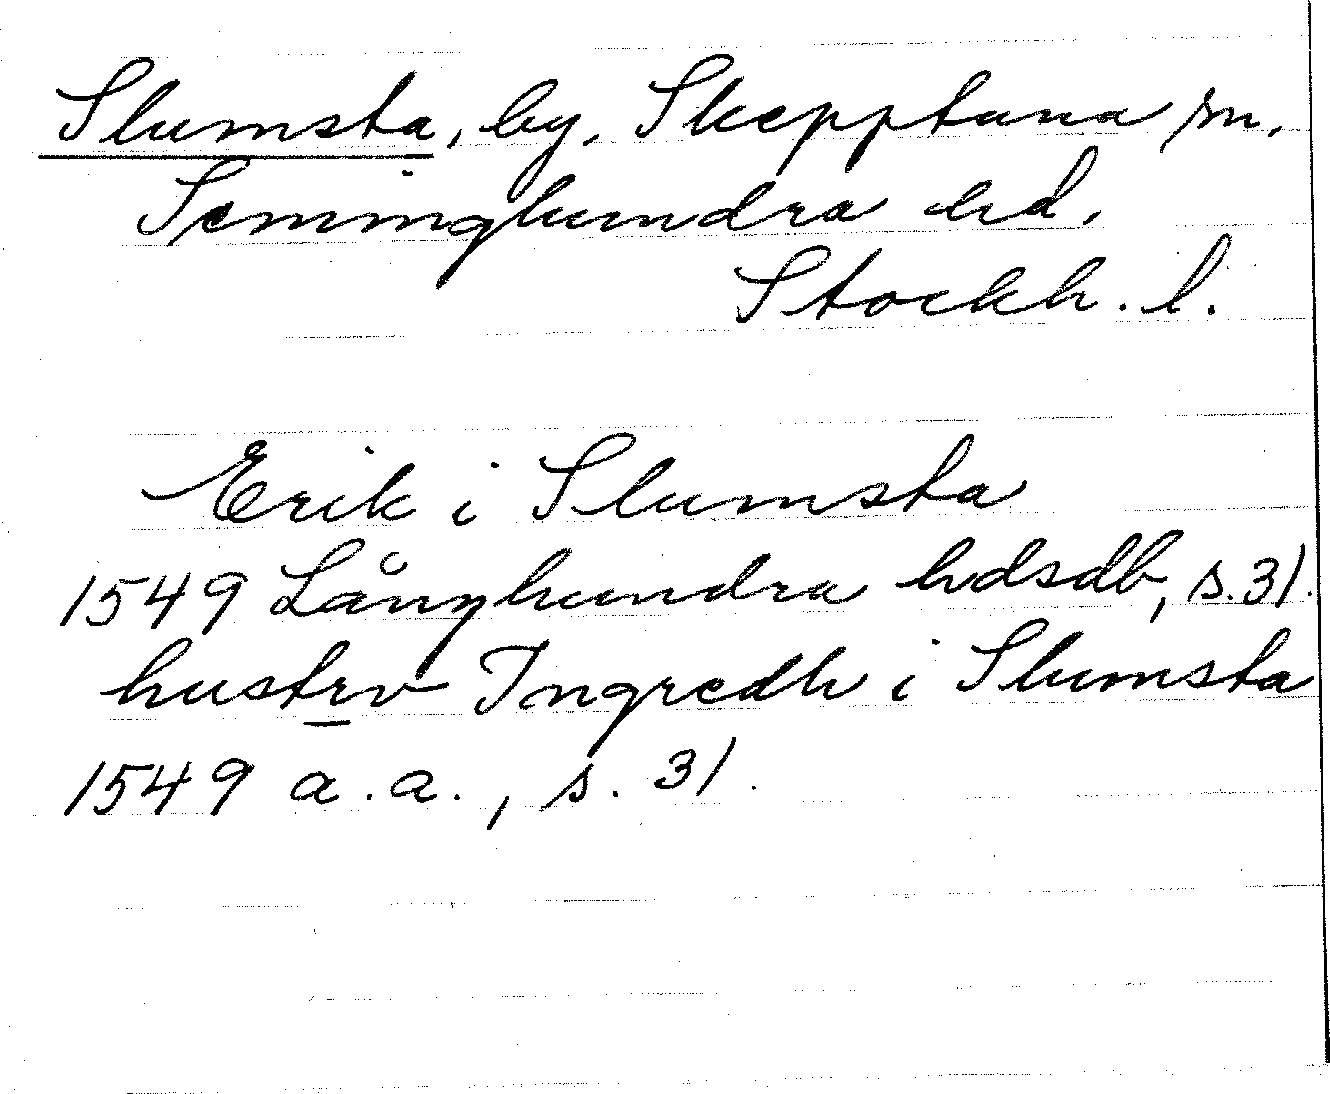 Slumsta, by, Skepptuna sn.
Seminghundra hd.
Stockh. l.
Erik i Slumsta
1549 Långhundra hdsdb, s. 31.
hustrv Ingredh i Slumsta
1549 a.a., s. 31.